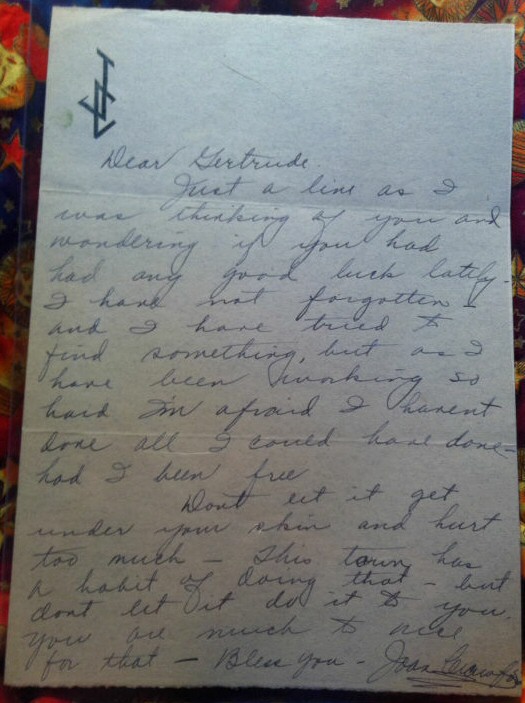 Dear Gertrude.
Just a line as I
was thinking of you and
wondering if you had
had any good luck lately -
I have not forgotten -
and I have tried to
find something, but as I
have been working so
hard I'm afraid I havent
done all I could have done -
had I been free
Dont let it get
under your skin and hurt
too much - This town has
a habit of doing that - but
dont let it do it to you.
you are much to nice
for that - Bless you - Joan Crawford